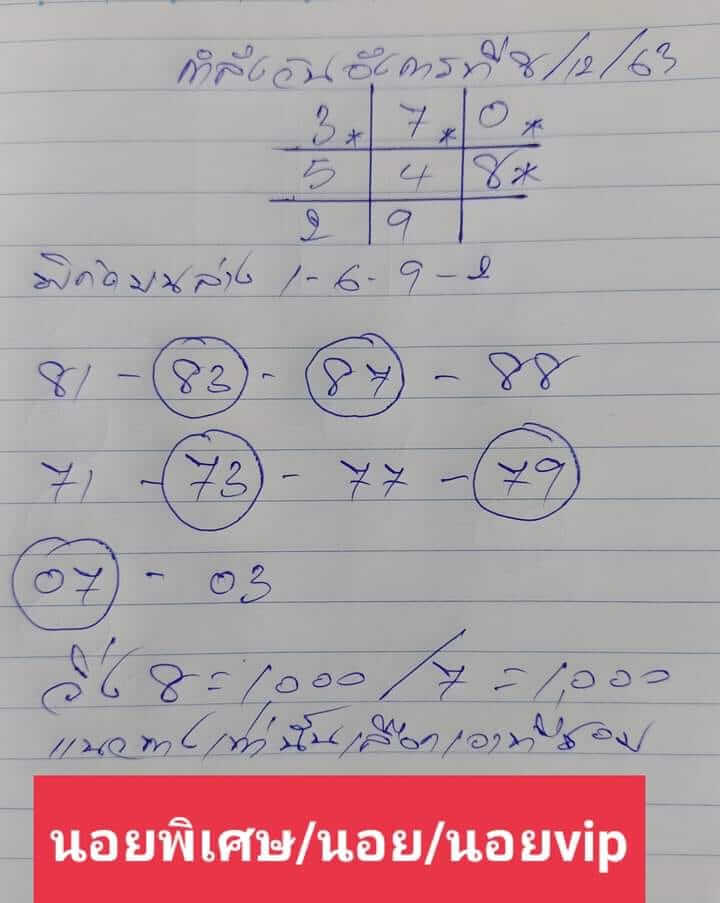 กำลังวันอังคารที่ 8/12/63
3* 7* 0*
5 4 8*
2 9
พิกัดบนล่าง 1-6-9-2
81 - 83 - 87 - 88
71 - 73 - 77 - 79
07 - 03
วิ่ง 8=1,000/7=1,000
แนวทางเท่านั้นเลือกเอาที่ชอบ
นอยพิเศษ/นอย/นอยvip